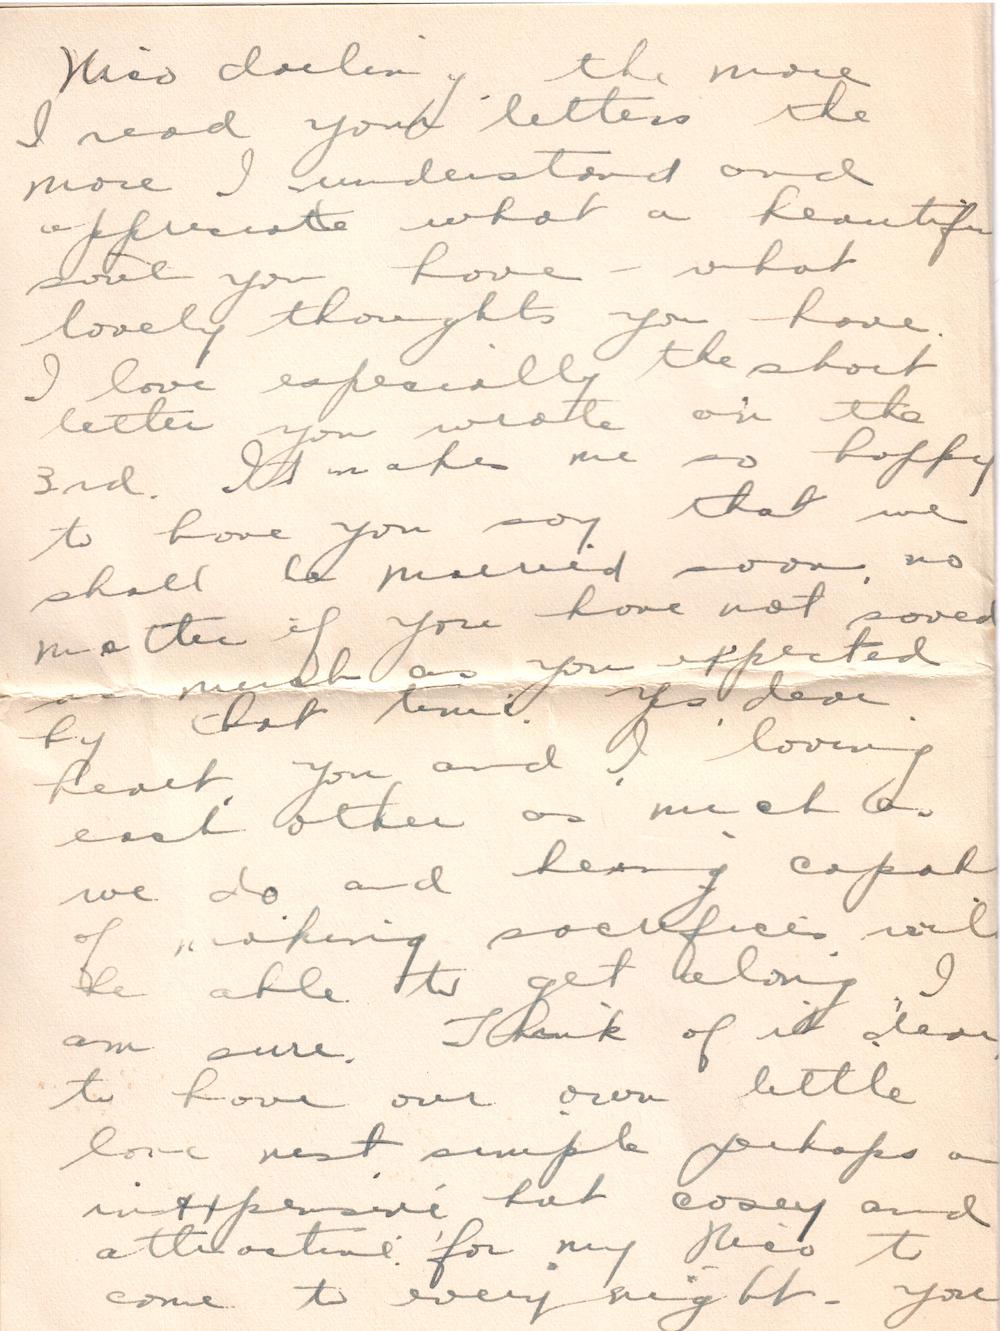 Nico darling the more
I read your letters the
more I understand and
appreciate what a beautifu
soul you have - what
lovely thoughts you have.
I love especially the short
letter you wrote on the
3rd. It makes me so happy
to have you say that we
shall be married soon, no
matter if you have not saved
as much as you expected
by that time. Yes, dear
heart, you and I, loving
each other as much as
we do and being capab
of making sacrifices will
be able to get along, I
am sure. Think of it dear,
to have our own little
love nest simple perhaps an
inexpensive but cosey and
attractive for my Nico to
come to every night - you